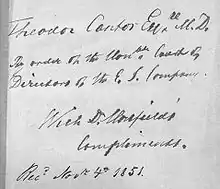 Theodor Cantor Esqre M.D.
By order of the Honble Court of
Directors of the E. I. Company.
With Dr Horsfield's
Compliments.
Recd Novr 4th 1851.